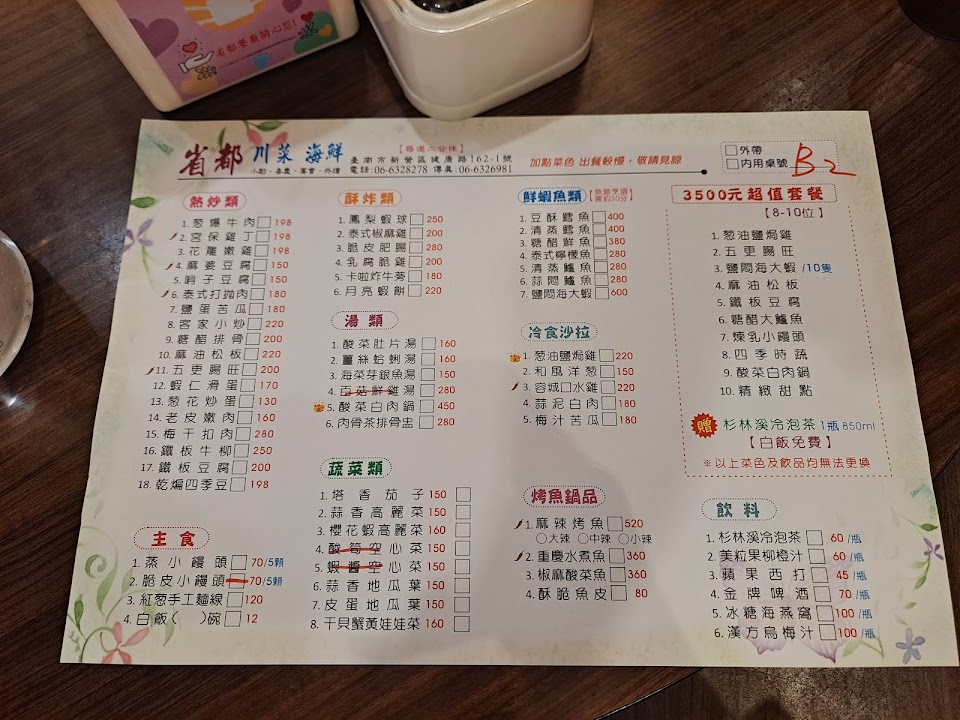 省都餐廳關心您!
省都 川菜 海鮮
小酌．喜慶．宴會．外燴
【每週二公休】
臺南市新營區健康路162-1號
電話:06-6328278 傳真:06-6326981
加點菜色 出餐較慢，敬請見諒
外帶
內用桌號 B2
熱炒類
1. 葱爆牛肉 198
2. 宮保雞丁 198
3. 花雕嫩雞 198
4. 麻婆豆腐 150
5. 哨子豆腐 150
6. 泰式打拋肉 180
7. 鹽蛋苦瓜 180
8. 客家小炒 220
9. 糖醋排骨 200
10. 麻油松板 220
11. 五更腸旺 200
12. 蝦仁滑蛋 170
13. 葱花炒蛋 130
14. 老皮嫩肉 160
15. 梅干扣肉 280
16. 鐵板牛柳 250
17. 鐵板豆腐 200
18. 乾煸四季豆 198
主食
1. 蒸小饅頭 70/5顆
2. 脆皮小饅頭 70/5顆
3. 紅葱手工麵線 120
4. 白飯( )碗 12
酥炸類
1. 鳳梨蝦球 250
2. 泰式椒麻雞 200
3. 脆皮肥腸 280
4. 乳腐脆雞 200
5. 卡啦炸牛蒡 180
6. 月亮蝦餅 220
湯類
1. 酸菜肚片湯 160
2. 薑絲蛤蜊湯 160
3. 海菜芽銀魚湯 150
4. 百菇鮮雞湯 280
5. 酸菜白肉鍋 450
6. 肉骨茶排骨盅 280
蔬菜類
1. 塔香茄子 150
2. 蒜香高麗菜 150
3. 櫻花蝦高麗菜 160
4. 酸筍空心菜 150
5. 蝦醬空心菜 150
6. 蒜香地瓜葉 150
7. 皮蛋地瓜葉 150
8. 干貝蟹黃娃娃菜 160
鮮蝦魚類 【魚類烹調需約30分】
1. 豆酥鱈魚 400
2. 清蒸鱈魚 400
3. 糖醋鮮魚 380
4. 泰式檸檬魚 280
5. 清蒸鱸魚 280
6. 蒜悶鱸魚 280
7. 鹽悶海大蝦 600
冷食沙拉
1. 葱油鹽焗雞 220
2. 和風洋葱 150
3. 容城口水雞 220
4. 蒜泥白肉 180
5. 梅汁苦瓜 180
烤魚鍋品
1. 麻辣烤魚 520
○大辣 ○中辣 ○小辣
2. 重慶水煮魚 360
3. 椒麻酸菜魚 360
4. 酥脆魚皮 80
3500元超值套餐
【8-10位】
1. 葱油鹽焗雞
2. 五更腸旺
3. 鹽悶海大蝦/10隻
4. 麻油松板
5. 鐵板豆腐
6. 糖醋大鱸魚
7. 煉乳小饅頭
8. 四季時蔬
9. 酸菜白肉鍋
10. 精緻甜點
贈 杉林溪冷泡茶 1瓶 850ml
【白飯免費】
※以上菜色及飲品均無法更換
飲料
1. 杉林溪冷泡茶 60 /瓶
2. 美粒果柳橙汁 60 /瓶
3. 蘋果西打 45 /瓶
4. 金牌啤酒 70 /瓶
5. 冰糖海燕窩 100 /瓶
6. 漢方烏梅汁 100 /瓶